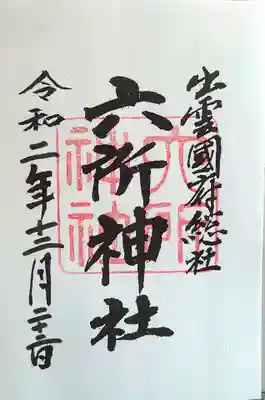 出雲國府総社
六所神社
令和二年十二月二十二日
六所神社